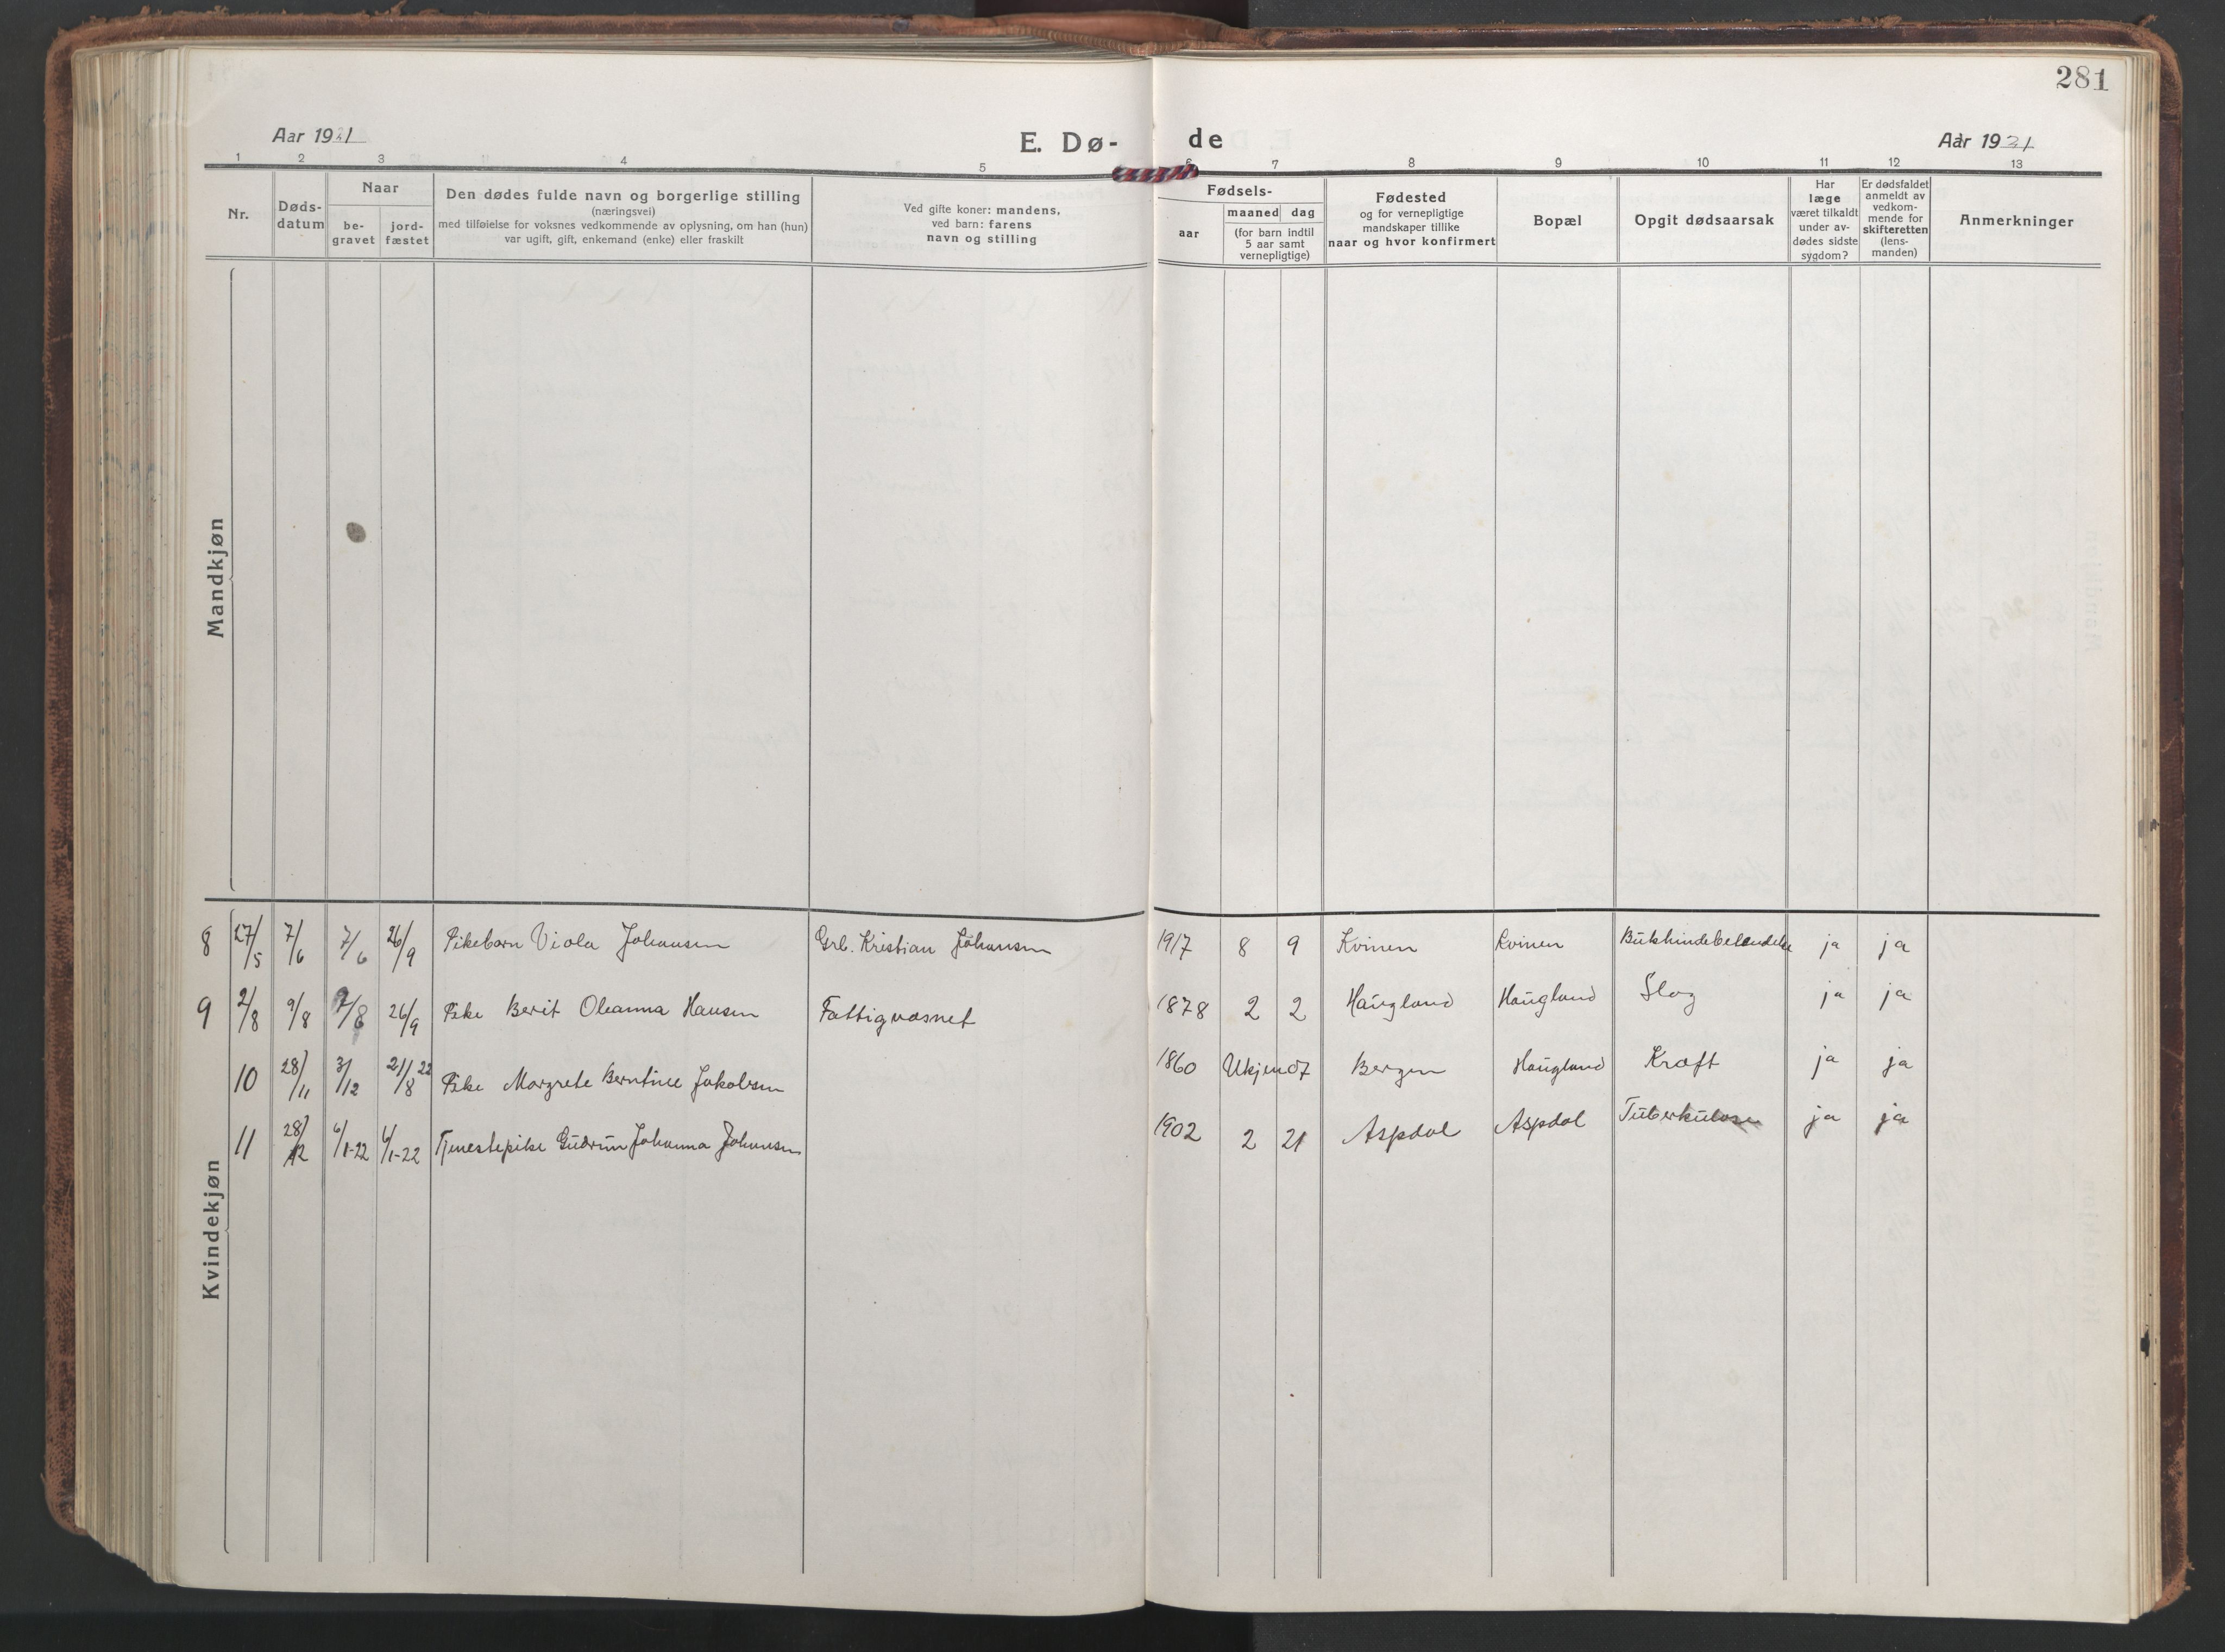 281
Aar 1921
E. Dø-
de
Aar 1921
1 2 3 4 5 6 7 8 9 10 11 12 13
Nr.
Døds-
datum
Naar
be-
gravet
jord-
fæstet
Den dødes fulde navn og borgerlige stilling
(næringsvei)
med tilføielse for voksnes vedkommende av oplysning, om han (hun)
var ugift, gift, enkemand (enke) eller fraskilt
Ved gifte koner: mandens,
ved barn: farens
navn og stilling
Fødsels-
aar
maaned dag
(for barn indtil
5 aar samt
vernepligtige)
Fødested
og for vernepligtige
mandskaper tillike
naar og hvor konfirmert
Bopæl
Opgit dødsaarsak
Har
læge
været tilkaldt
under av-
dødes sidste
sygdom?
Er dødsfaldet
anmeldt av
vedkom-
mende for
skifteretten
(lens-
manden)
Anmerkninger
Mandkjøn
Kvindekjøn
8 27/5 7/6 7/6 26/9 Pikebarn Viola Johansen Grb. Kristian Johansen 1917 8 9 Kvinen Kvinen ja ja
9 2/8 9/8 26/9 Pike Berit Oleanna Hansen Fattigvæsnet 1878 2 2 Haugland Haugland Slag ja ja
10 28/11 3/12 21/8 22 Pike Margrete Berntine Jakobsen 1860 Ukjendt Bergen Haugland Kræft ja ja
11 28/12 6/1-22 6/1-22 Tjenestepike Gudrun Johanna Johansen 1902 2 21 Aspdal Aspdal Tuberkulose ja ja